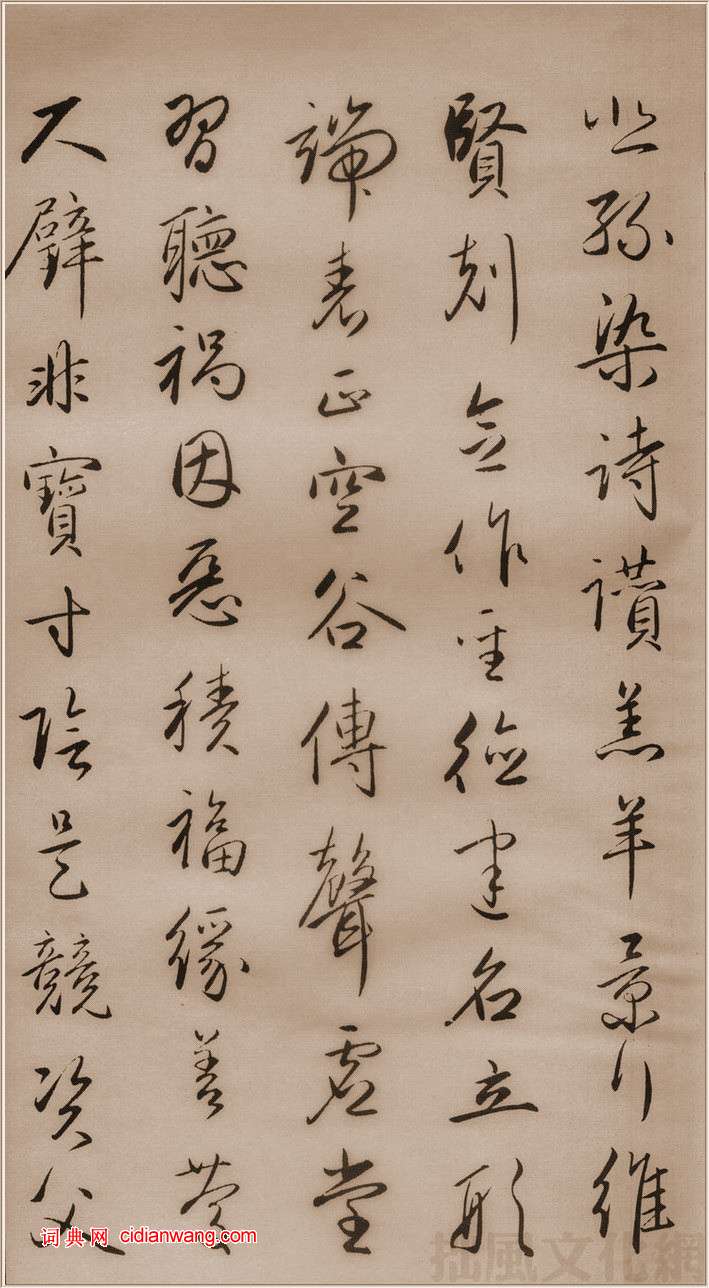 悲絲染詩讚羔羊景行維
賢剋念作聖德建名立形
端表正空谷傳聲虛堂
習聽禍因惡積福緣善慶
尺璧非寶寸陰是競資父
词典网 cidianwang.com
拙風文化網